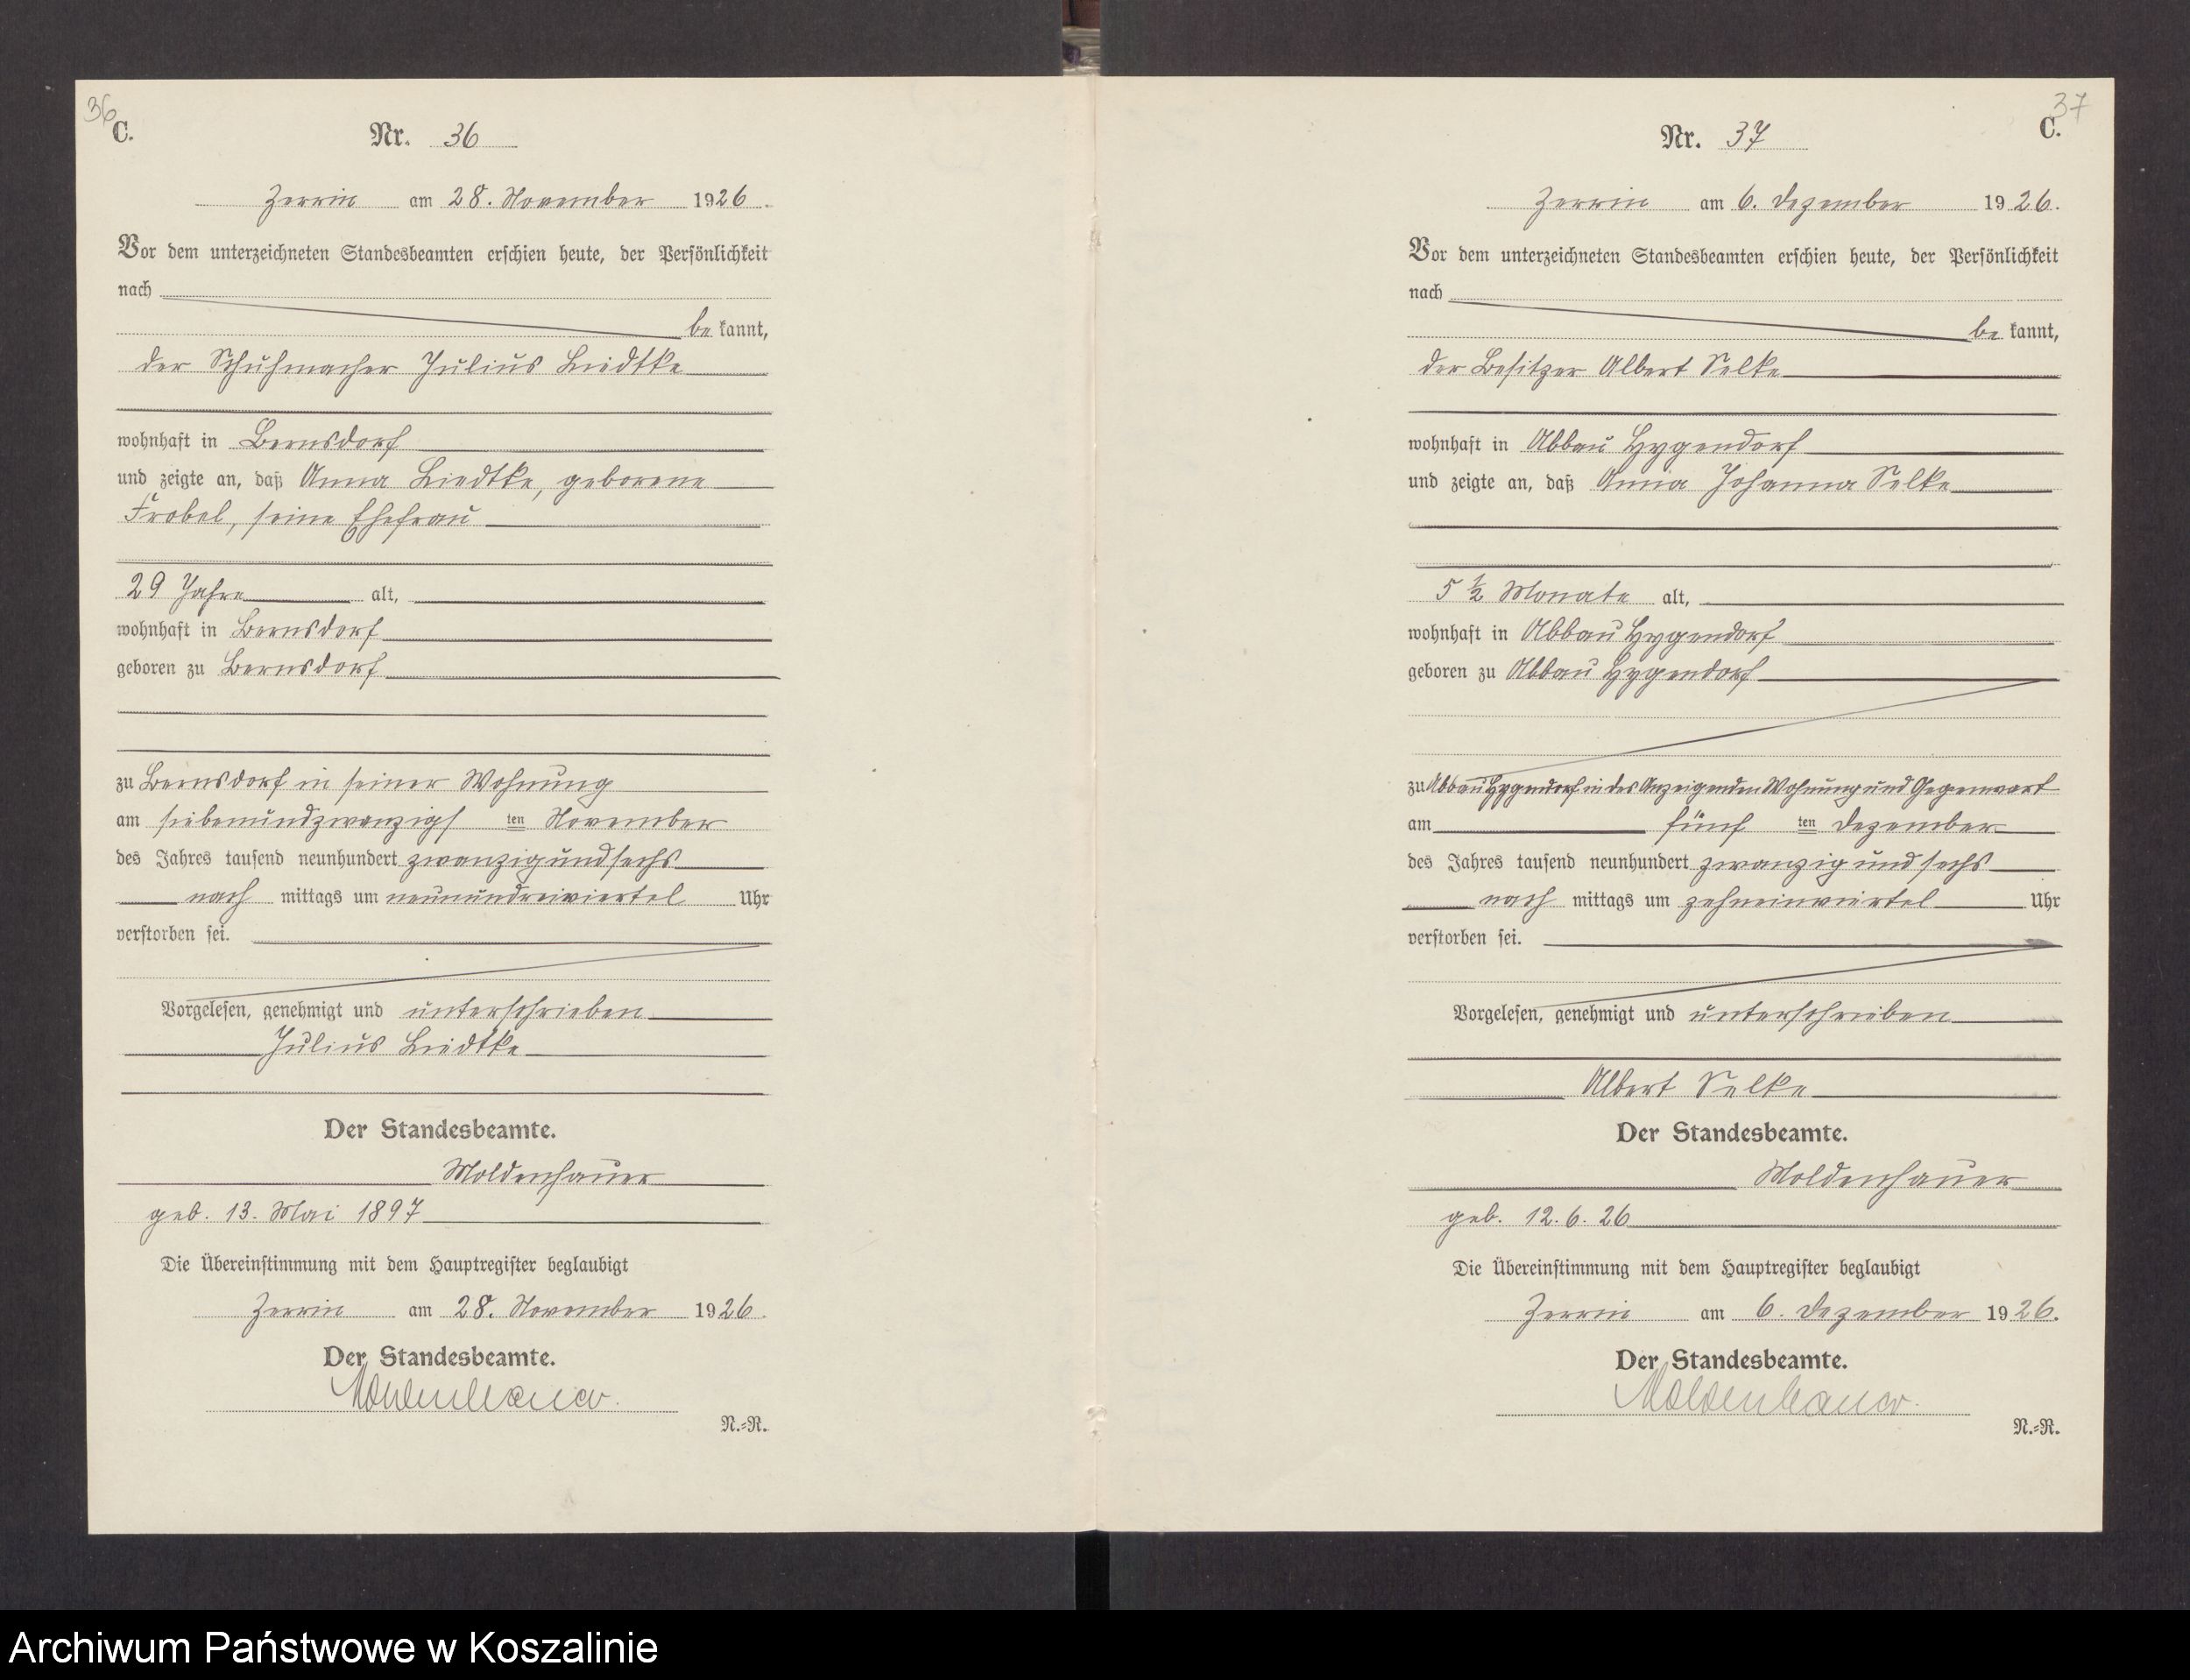 36
C.
Nr. 36
Zerrin am 28. November 1926.
Vor dem unterzeichneten Standesbeamten erschien heute, der Persönlichkeit
nach
be kannt,
der Schuhmacher Julius Liedtke
wohnhaft in Bernsdorf
und zeigte an, daß Anna Liedtke, geborene
Frobel, seine Ehefrau
29 Jahre alt,
wohnhaft in Bernsdorf
geboren zu Bernsdorf
zu Bernsdorf in seiner Wohnung
am siebenundzwanzigs ten November
des Jahres tausend neunhundert zwanzigundsechs
nach mittags um neunundreiviertel Uhr
verstorben sei.
Vorgelesen, genehmigt und unterschrieben
Julius Liedtke
Der Standesbeamte.
Moldenhauer
geb. 13. Mai 1897
Die Übereinstimmung mit dem Hauptregister beglaubigt
Zerrin am 28. November 1926.
Der Standesbeamte.
Moldenhauer.
N.=R.
37
C.
Nr. 37
Zerrin am 6. Dezember 1926.
Vor dem unterzeichneten Standesbeamten erschien heute, der Persönlichkeit
nach
be kannt,
der Besitzer Albert Selke
wohnhaft in Abbau Hygendorf
und zeigte an, daß Anna Johanna Selke
5 ½ Monate alt,
wohnhaft in Abbau Hygendorf
geboren zu Abbau Hygendorf
zu Abbau Hygendorf in des Anzeigenden Wohnung und Gegenwart
am fünf ten Dezember
des Jahres tausend neunhundert zwanzigundsechs
nach mittags um zehneinviertel Uhr
verstorben sei.
Vorgelesen, genehmigt und unterschrieben
Albert Selke
Der Standesbeamte.
Moldenhauer
geb. 12. 6. 26
Die Übereinstimmung mit dem Hauptregister beglaubigt
Zerrin am 6. Dezember 1926.
Der Standesbeamte.
Moldenhauer.
N.=R.
Archiwum Państwowe w Koszalinie